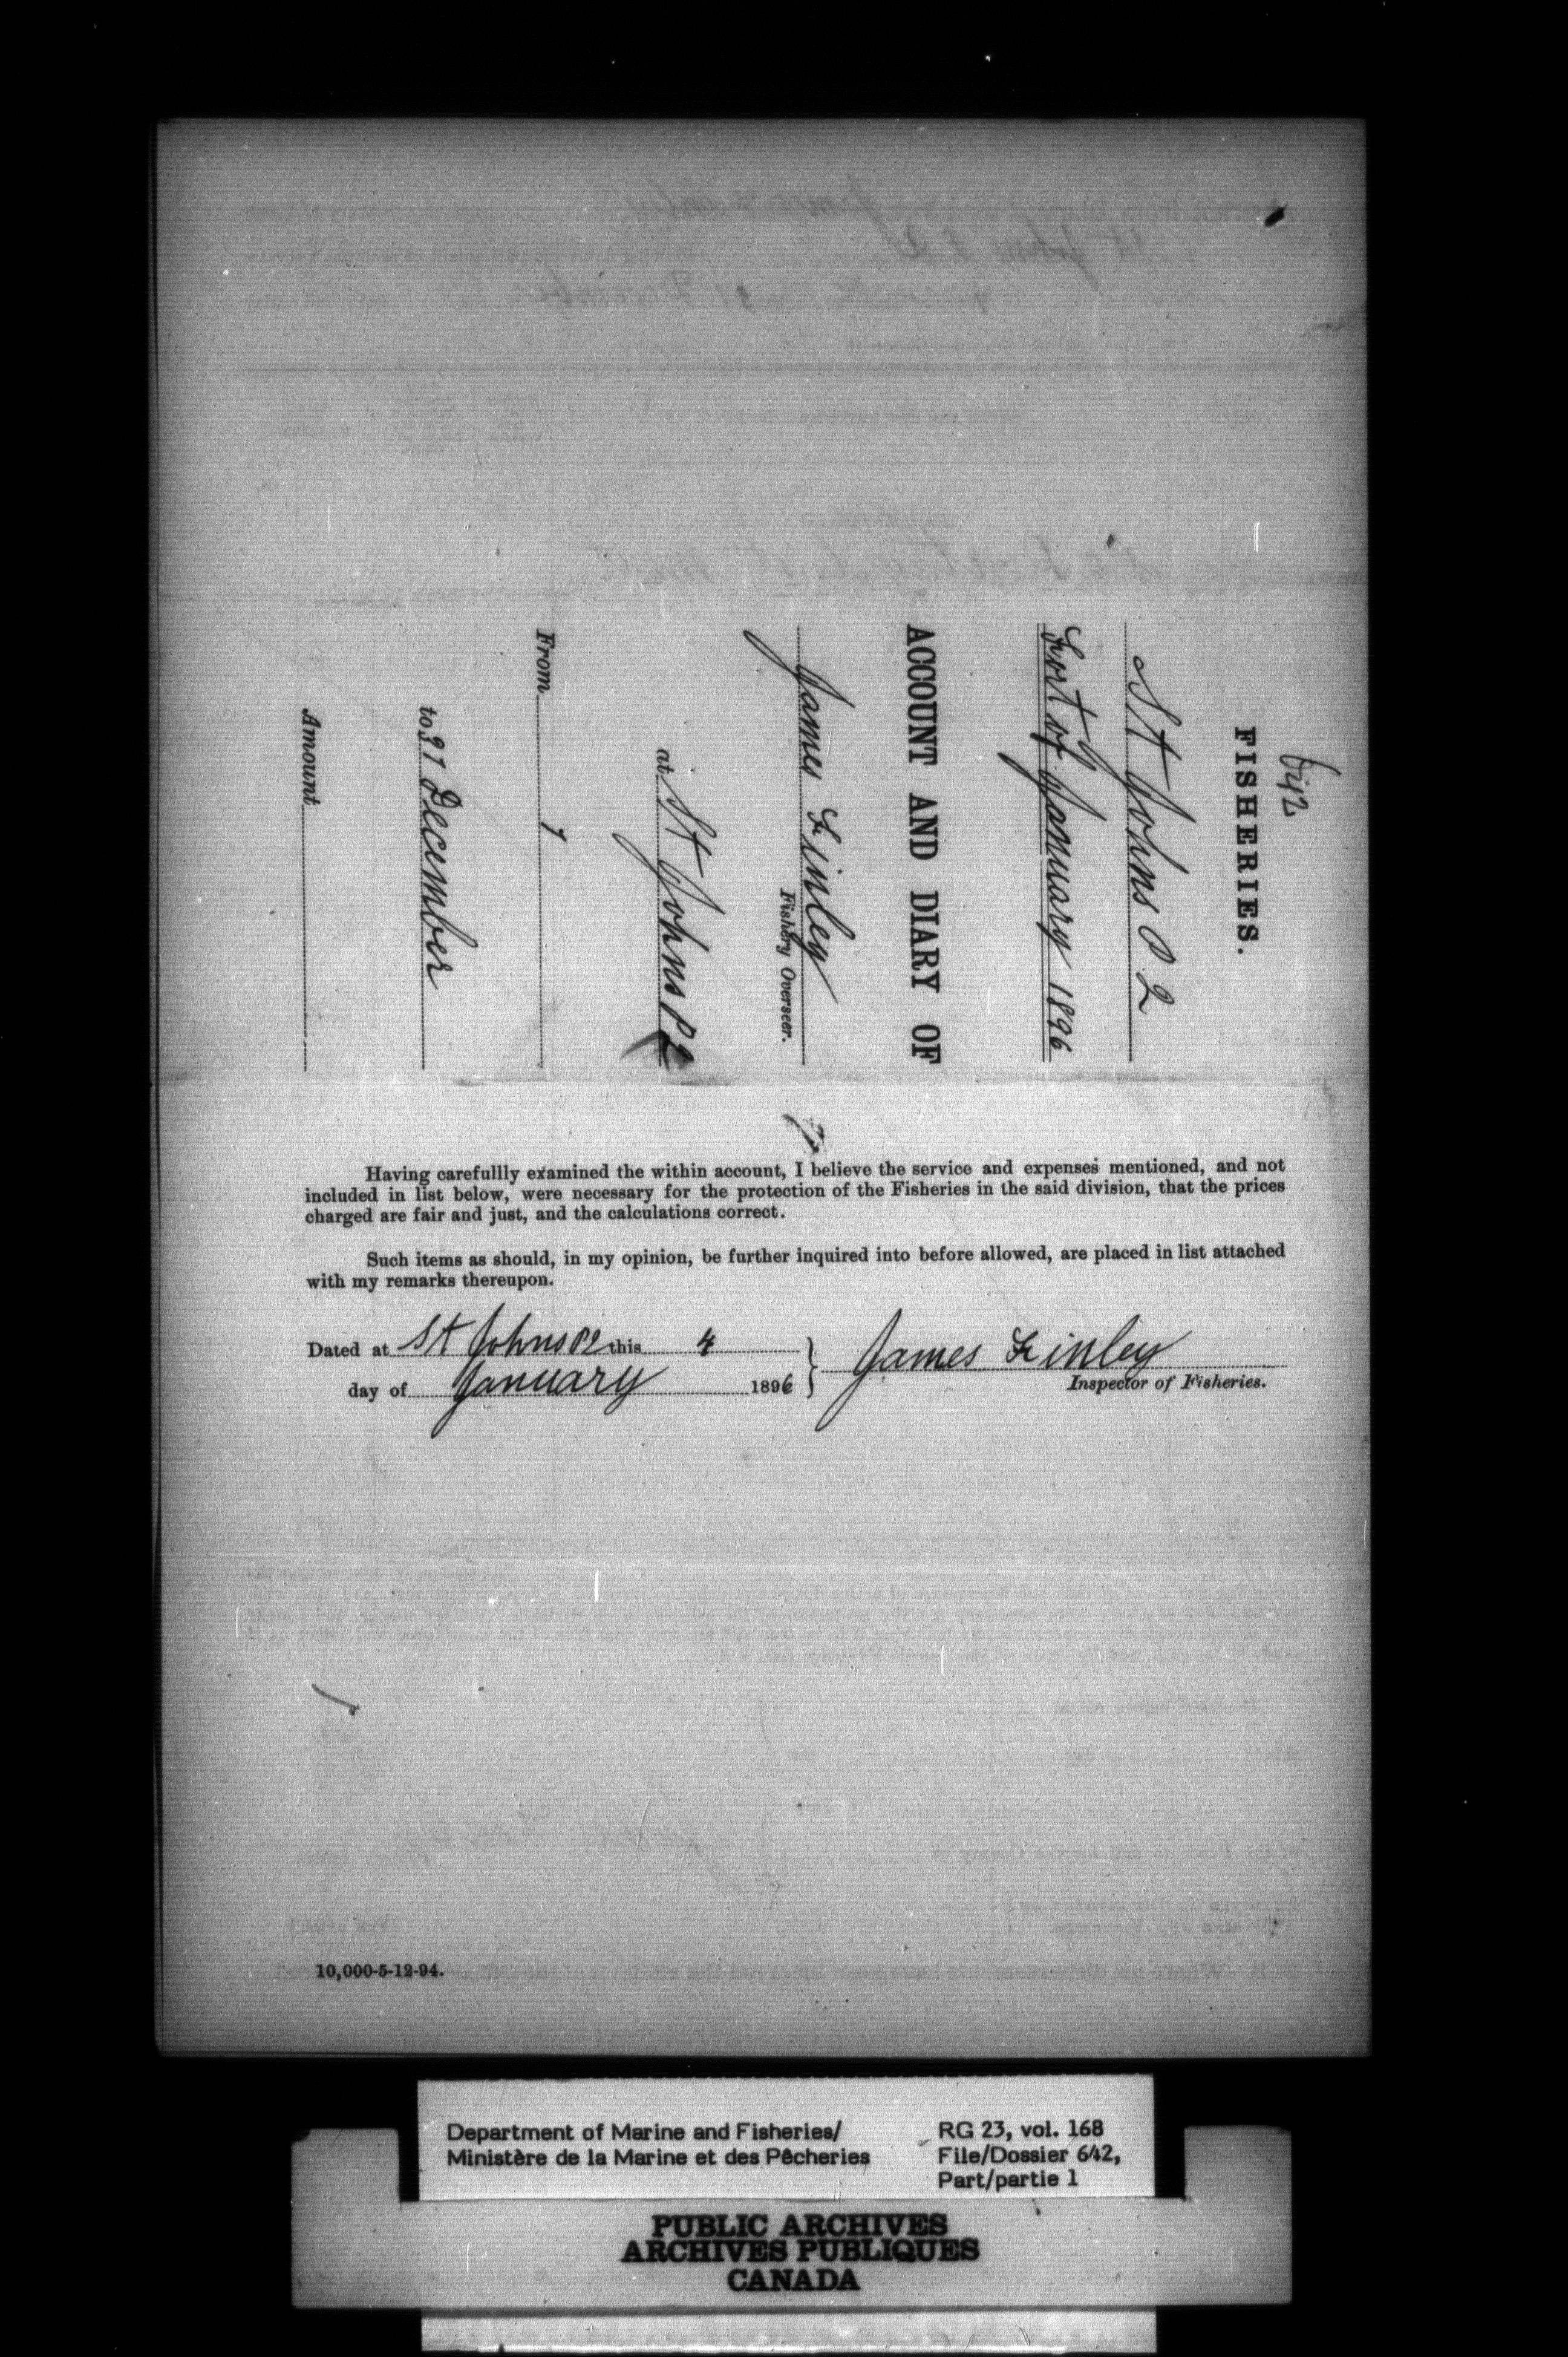 642
FISHERIES.
St Johns P 2
Fort of January 1896
ACCOUNT AND DIARY OF
James Finley
Fishery Overseer.
at St Johns P2
From 1
to 31 December
Amount
Having carefullly examined the within account, I believe the service and expenses mentioned, and not
included in list below, were necessary for the protection of the Fisheries in the said division, that the prices
charged are fair and just, and the calculations correct.
Such items as should, in my opinion, be further inquired into before allowed, are placed in list attached
with my remarks thereupon.
Dated at St Johns P2 this 4
day of January 1896
James Finley
Inspector of Fisheries.
10,000-5-12-94.
Department of Marine and Fisheries/
Ministère de la Marine et des Pêcheries
RG 23, vol. 168
File/Dossier 642,
Part/partie 1
PUBLIC ARCHIVES
ARCHIVES PUBLIQUES
CANADA